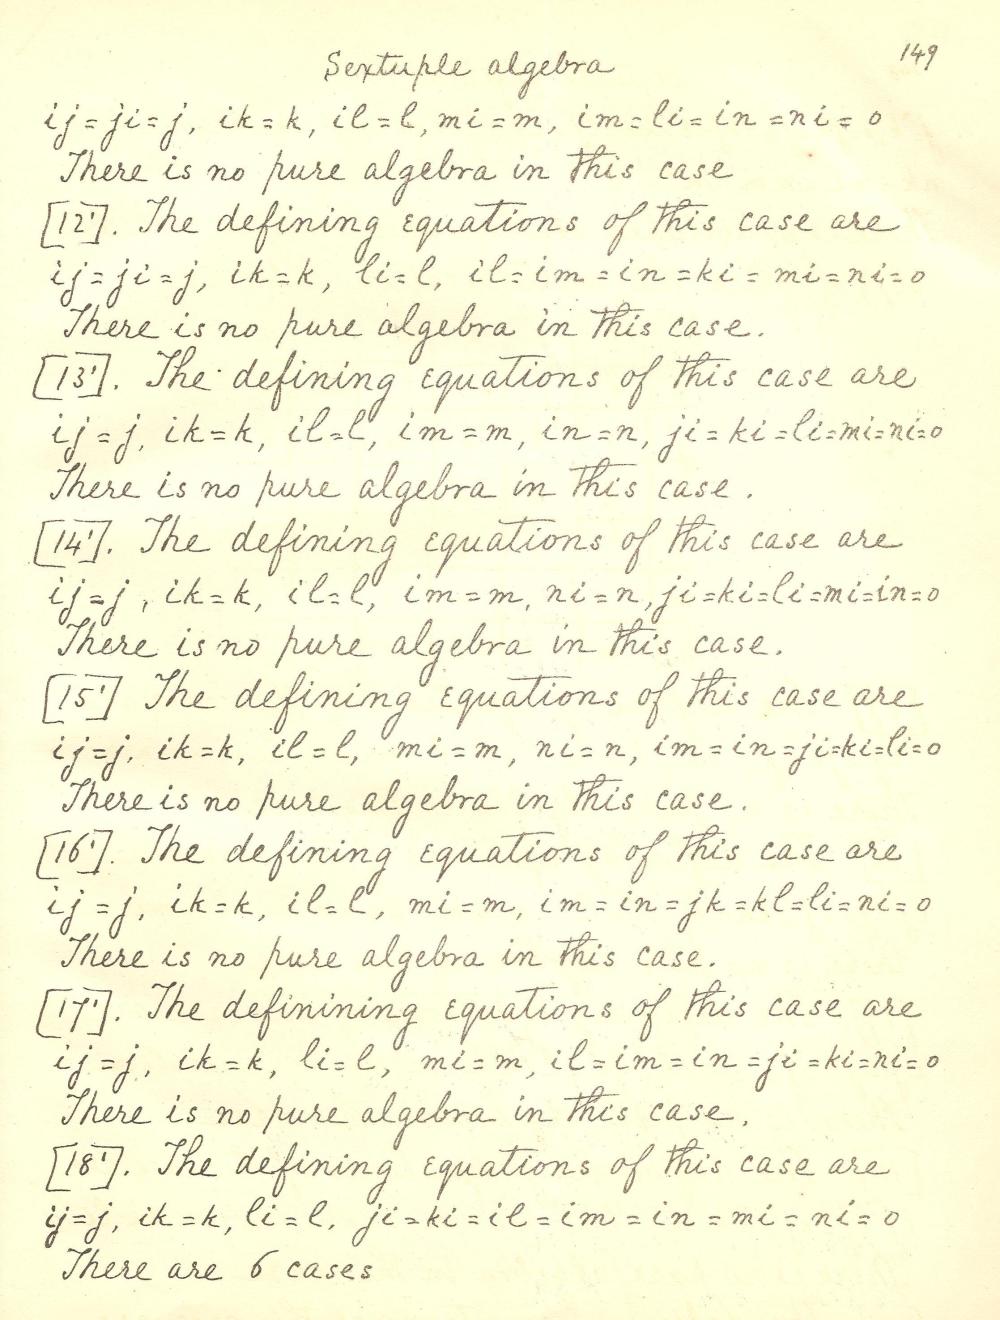 149
Sextuple algebra
ij=ji=j, ik=k, il=l, mi=m, im=li=in=ni=0
There is no pure algebra in this case
[12']. The defining equations of this case are
ij=ji=j, ik=k, li=l, il=im=in=ki=mi=ni=0
There is no pure algebra in this case.
[13']. The defining equations of this case are
ij=j, ik=k, il=l, im=m, in=n, ji=ki=li=mi=ni=0
There is no pure algebra in this case.
[14']. The defining equations of this case are
ij=j, ik=k, il=l, im=m, ni=n, ji=ki=li=mi=in=0
There is no pure algebra in this case.
[15'] The defining equations of this case are
ij=j, ik=k, il=l, mi=m, ni=n, im=in=ji=ki=li=0
There is no pure algebra in this case.
[16']. The defining equations of this case are
ij=j, ik=k, il=l, mi=m, im=in=jk=kl=li=ni=0
There is no pure algebra in this case.
[17']. The definining equations of this case are
ij=j, ik=k, li=l, mi=m, il=im=in=ji=ki=ni=0
There is no pure algebra in this case.
[18']. The defining equations of this case are
ij=j, ik=k, li=l, ji=ki=il=im=in=mi=ni=0
There are 6 cases